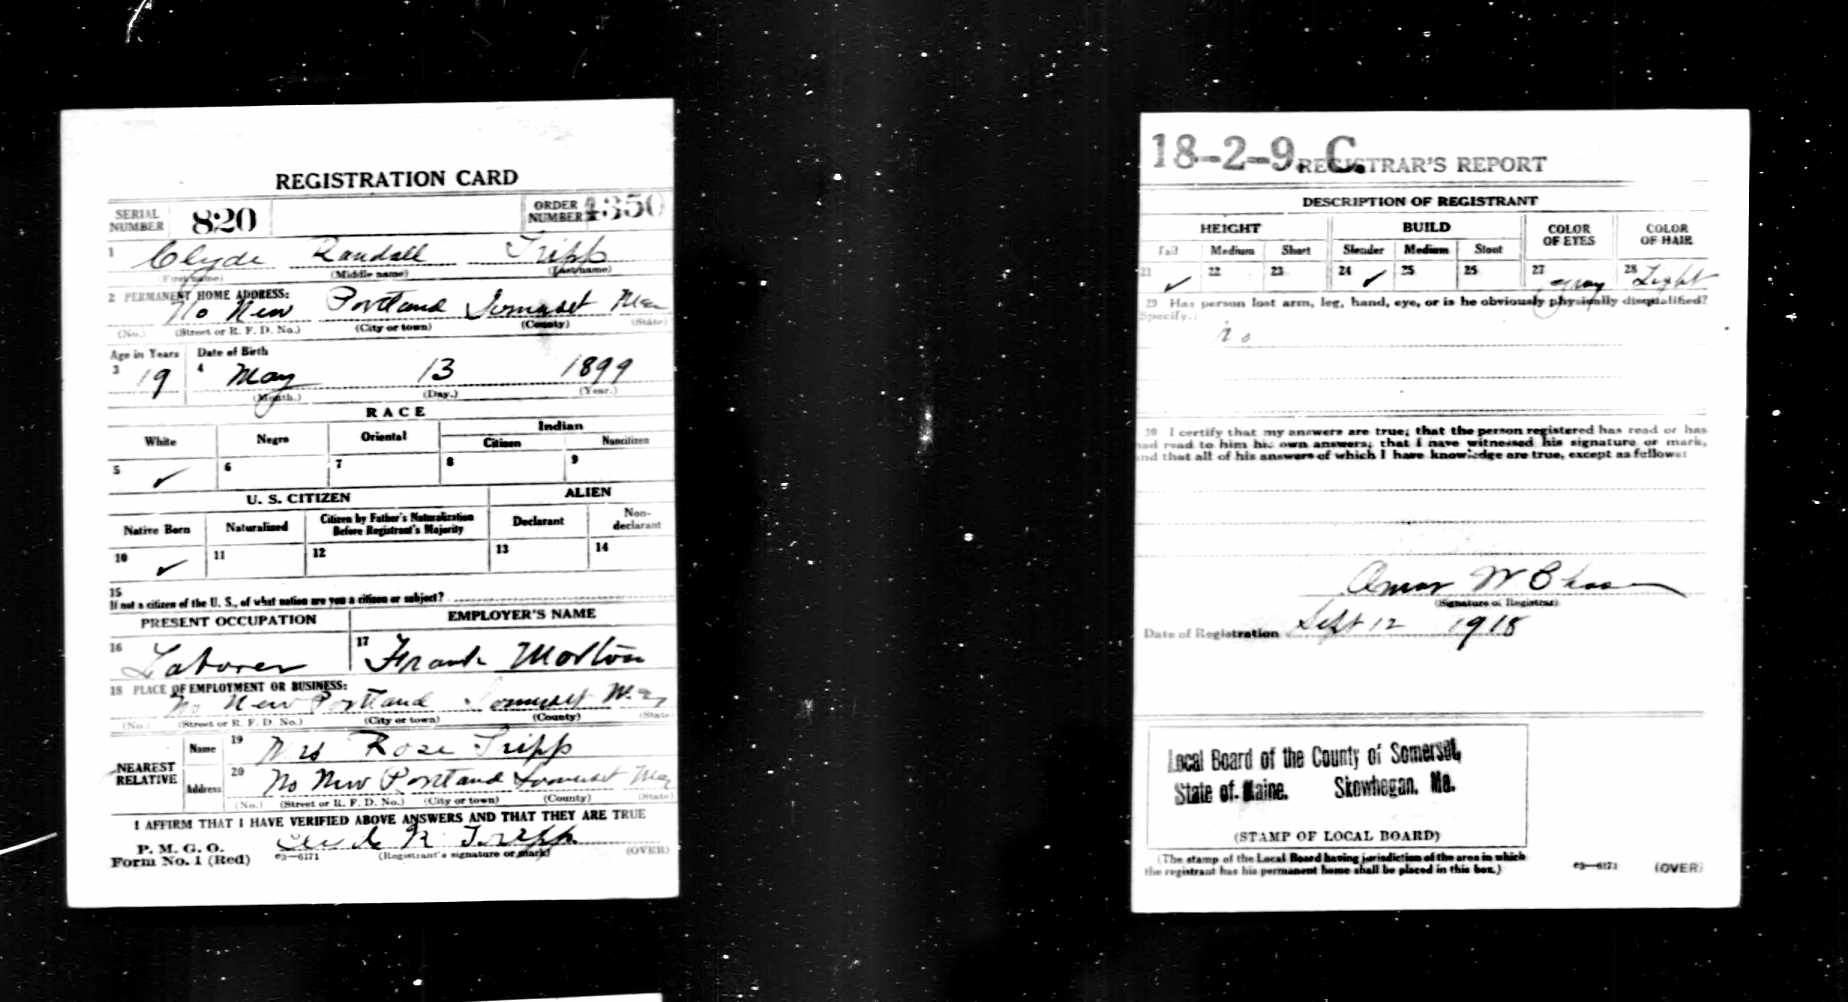 REGISTRATION CARD
SERIAL NUMBER 820 ORDER NUMBER 4350
1 Clyde Randall Tripp
(First name) (Middle name) (Last name)
2 PERMANENT HOME ADDRESS:
No New Portland Somerset Me
(No.) (Street or R. F. D. No.) (City or town) (County) (State)
Age in Years Date of Birth
3 19 4 May 13 1899
(Month.) (Day.) (Year.)
RACE
White Negro Oriental Indian
Citizen Noncitizen
5 ✓ 6 7 8 9
U. S. CITIZEN ALIEN
Native Born Naturalized Citizen by Father's Naturalization Before Registrant's Majority Declarant Non-declarant
10 ✓ 11 12 13 14
15
If not a citizen of the U. S., of what nation are you a citizen or subject?
PRESENT OCCUPATION EMPLOYER'S NAME
16 Laborer 17 Frank Morton
18 PLACE OF EMPLOYMENT OR BUSINESS:
No New Portland Somerset Me
(No.) (Street or R. F. D. No.) (City or town) (County) (State)
NEAREST RELATIVE Name 19 Mrs Rose Tripp
Address 20 No New Portland Somerset Me
(No.) (Street or R. F. D. No.) (City or town) (County) (State)
I AFFIRM THAT I HAVE VERIFIED ABOVE ANSWERS AND THAT THEY ARE TRUE
P. M. G. O.
Form No. 1 (Red) 03—6171 Clyde R Tripp
(Registrant's signature or mark) (OVER)
18-2-9. C.
REGISTRAR'S REPORT
DESCRIPTION OF REGISTRANT
HEIGHT BUILD COLOR OF EYES COLOR OF HAIR
Tall Medium Short Slender Medium Stout
21 ✓ 22 23 24 ✓ 25 26 27 gray 28 Light
29 Has person lost arm, leg, hand, eye, or is he obviously physically disqualified?
Specify.:
no
30 I certify that my answers are true; that the person registered has read or has
had read to him his own answers; that I have witnessed his signature or mark,
and that all of his answers of which I have knowledge are true, except as follows:
W
(Signature of Registrar)
Date of Registration Sept 12 1918
Local Board of the County of Somerset,
State of Maine. Skowhegan, Me.
(STAMP OF LOCAL BOARD)
(The stamp of the Local Board having jurisdiction of the area in which
the registrant has his permanent home shall be placed in this box.)
03—6171 (OVER)